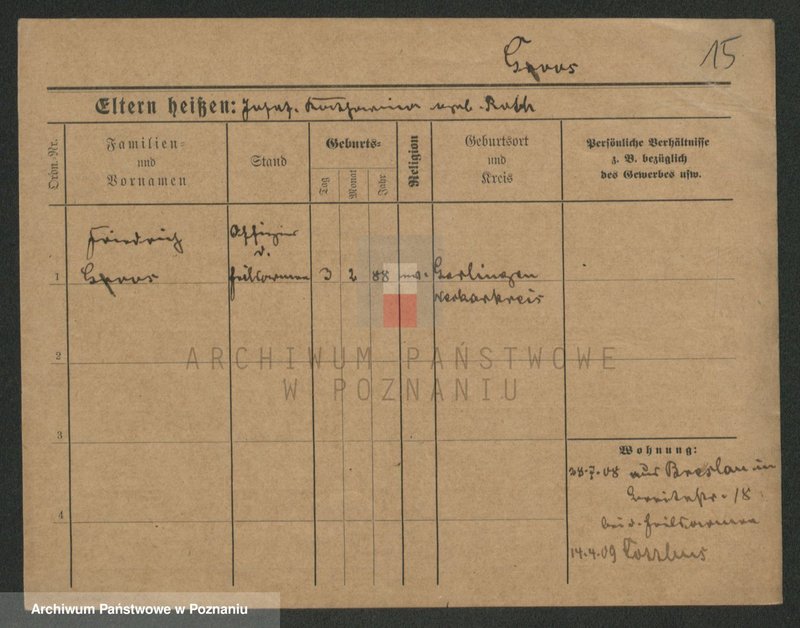 Groos
15
Eltern heißen: Josef. Katharina geb. Roth
Ordn. Nr.
Familien-
und
Vornamen
Stand
Geburts-
Tag
Monat
Jahr
Religion
Geburtsort
und
Kreis
Persönliche Verhältnisse
z. B. bezüglich
des Gewerbes usw.
Friedrich
Offizier
d.
1
Groos
Heilsarmee
3
2
88
ev.
Gerlingen
Neckarkreis
2
3
4
ARCHIWUM PAŃSTWOWE
W POZNANIU
Wohnung:
28.7.08 aus Breslau in
Breitestr. 18
bei d. Heilsarmee
14.4.09 Cottbus
Archiwum Państwowe w Poznaniu